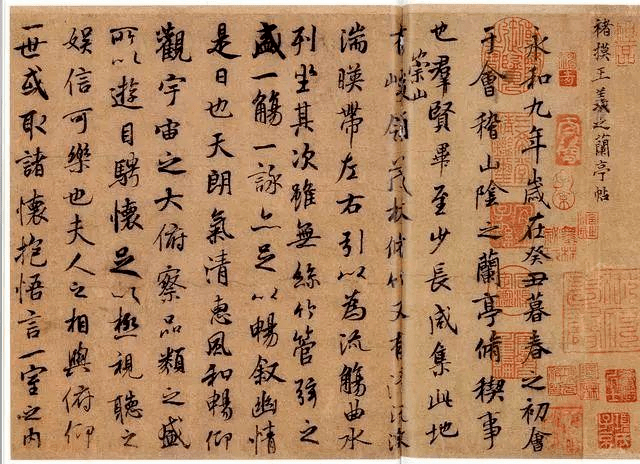 褚摸王羲之蘭亭帖
永和九年歲在癸丑暮春之初會
于會稽山陰之蘭亭脩稧事
也羣賢畢至少長咸集此地
有崇山峻領茂林脩竹又有清流激
湍暎帶左右引以為流觴曲水
列坐其次雖無絲竹管弦之
盛一觴一詠亦足以暢叙幽情
是日也天朗氣清惠風和暢仰
觀宇宙之大俯察品類之盛
所以遊目騁懷足以極視聽之
娛信可樂也夫人之相與俯仰
一世或取諸懷抱悟言一室之內